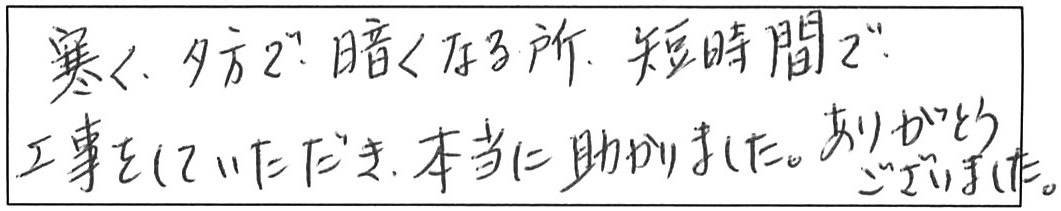 寒く、夕方で暗くなる所、短時間で
工事をしていただき、本当に助かりました。ありがとう
ございました。